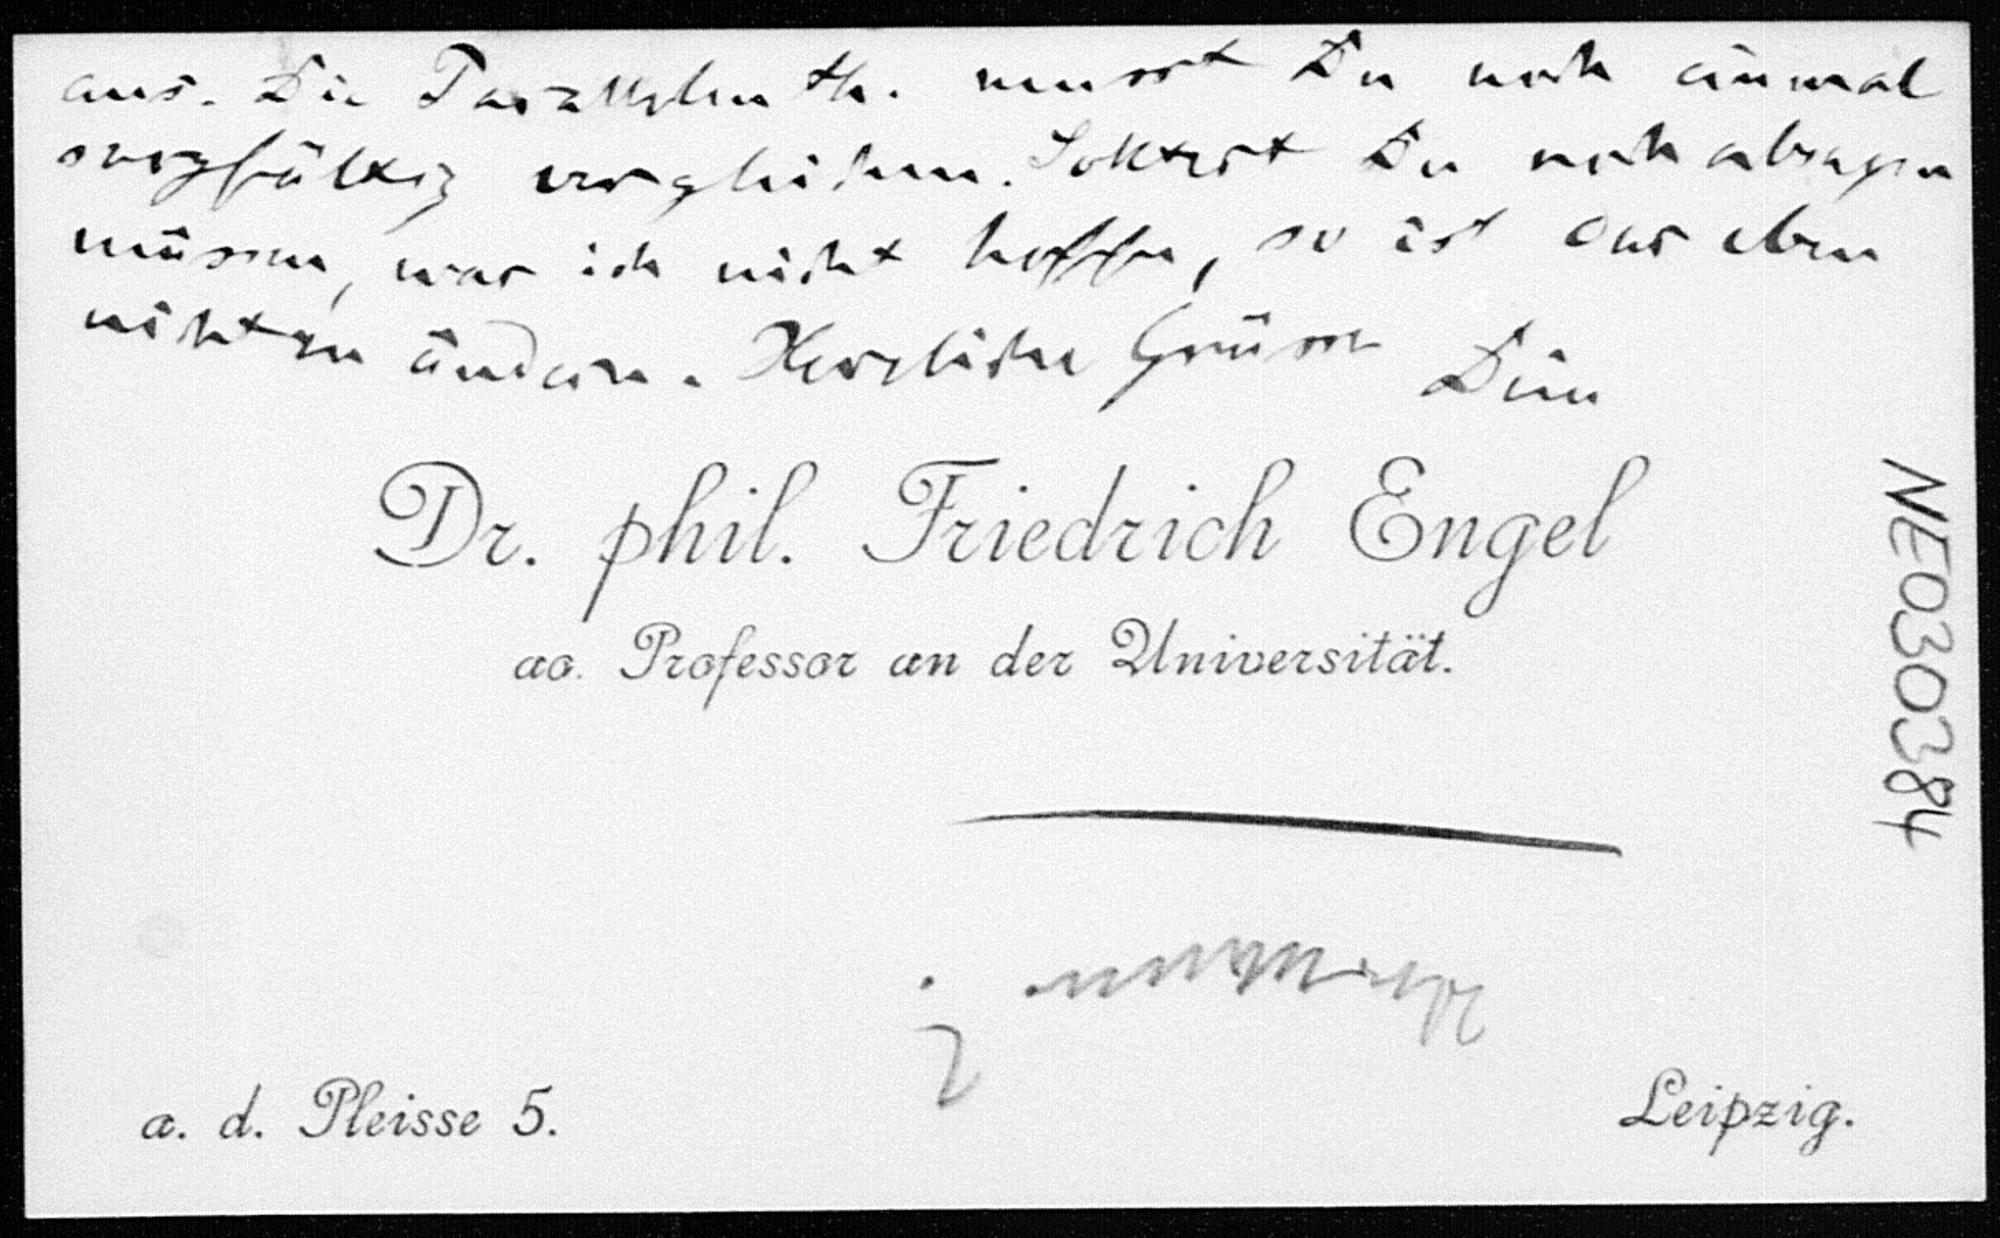 aus. Die Parallelenth. musst Du noch einmal
sorgfältig vergleichen. Solltest Du noch absagen
müssen, was ich nicht hoffe, so ist das eben
nicht zu ändern. Herzliche Grüsse Dein
Dr. phil. Friedrich Engel
ao. Professor an der Universität.
a. d. Pleisse 5.
Leipzig.
NE030384